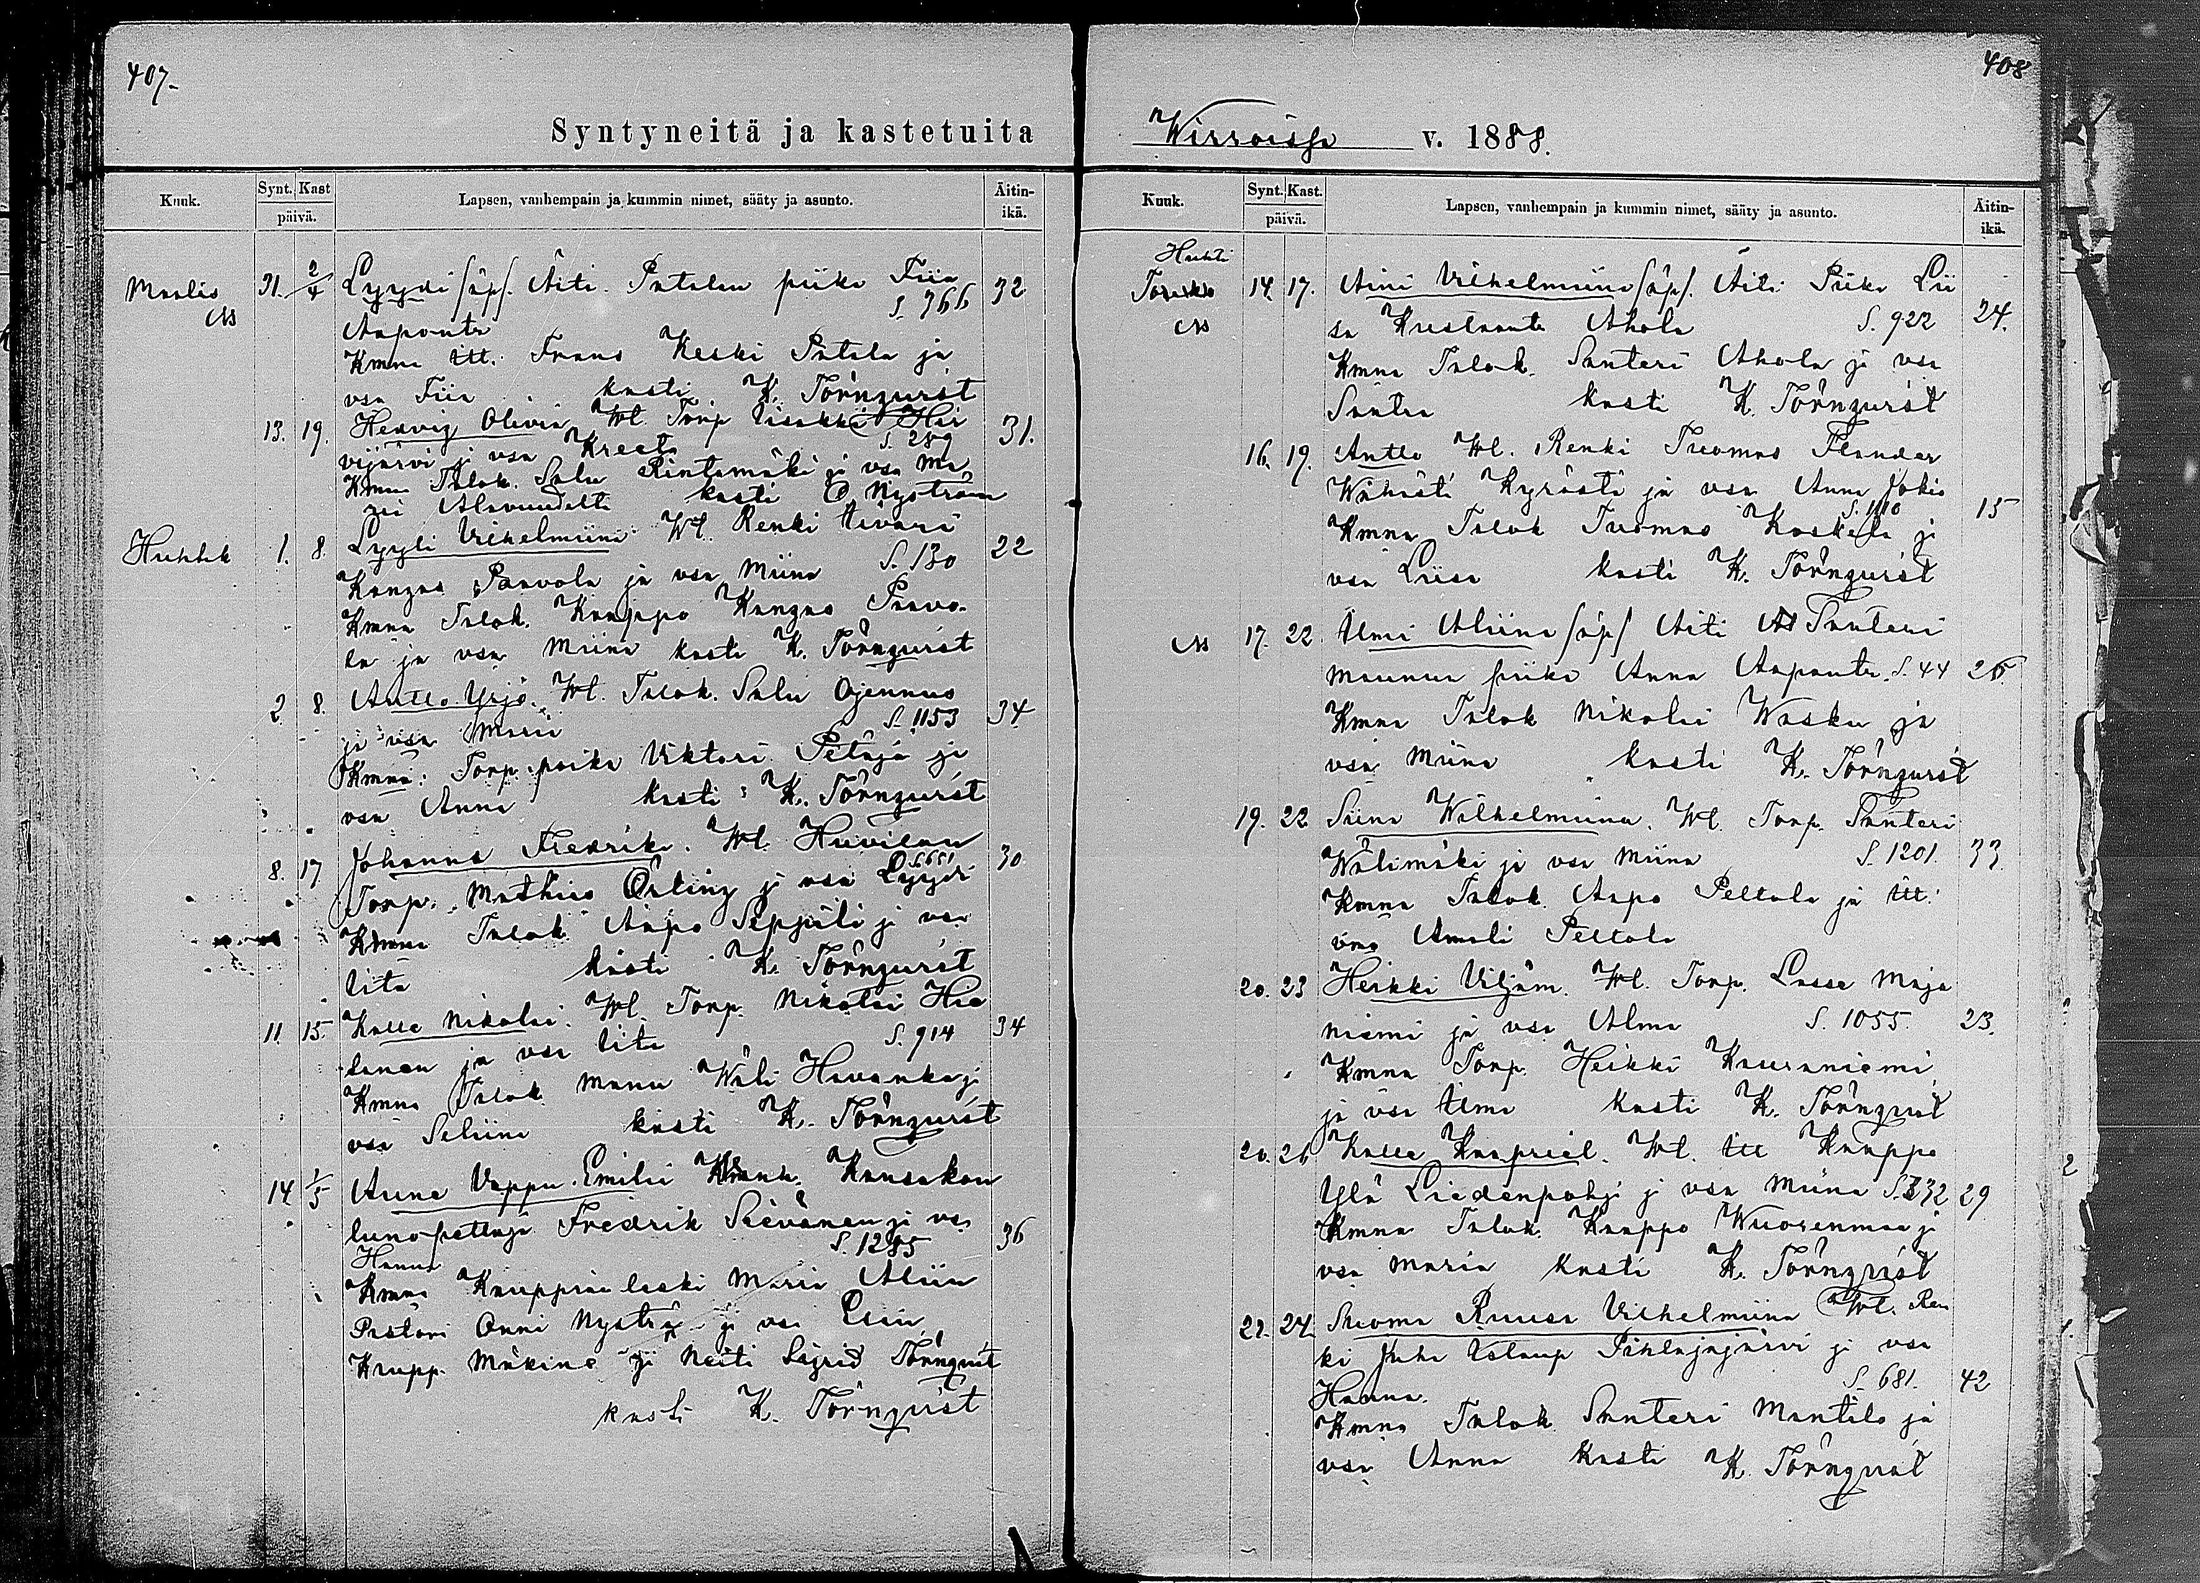 407.
Syntyneitä ja kastetuita
Kuuk.
Synt. Kast
päivä.
Lapsen, vanhempain ja kummin nimet, sääty ja asunto.
Äitin-
ikä.
Maalis 31. 2/4 Lyydi /äp/. Äiti Patalan piika Fiia 32
Aapontr S. 366
Kmna itt. Frans Keski Patala ja
vsa Fiia kasti K. Törnqvist
13. 19. Hedvig Olivia Wl. Torp Iisakki Hir 31.
vijärvi ja vsa Kreeta S. 289
Kmna Talok. Salu Rintamäki ja vsa Ma
ria Alavuudelta kasti O. Nyström
Huhtik 1. 8. Lyyli Vilhelmiina Wl. Renki Iivari 22
Kangas Paavola ja vsa Miina S. 130
Kmna Talok. Kaappo Kangas Paavo-
la ja vsa Miina kasti K. Törnqvist
2. 8. Antto Yrjö. Wl. Talok. Salu Ojennus 34
ja vsa Maria S. 1153
Kmna: Torp. poika Viktori Petäjä ja
vsa Anna kasti: K. Törnqvist
8. 17 Johanna Fredrika. Wl. Huvilan 30.
Torp. Mathias Örling ja vsa Lyydi S. 651
Kmna Talok. Aapo Seppäli ja vsa
Iita kasti K. Törnqvist
11. 15. Kalle Nikolai. Wl. Torp. Nikolai Hie 34
tanen ja vsa Iita S. 914
Kmna Talok. Manu Wäli Havanka ja
vsa Seliina kasti K. Törnqvist
14. 1/5 Aune Vappu Emilii Kansakou
lunopettaja Fredrik Sievänen ja vsa 36
Hanna S. 1285
Kmna Kauppiaa leski Maria Aliin
Pastori Onni Nyström ja vsa Elin
Kaupp. Mäkine ja Neiti Sigrid Törnqvist
kasti K. Törnqvist
408
Wirroissa v. 1888.
Kuuk.
Synt. Kast.
päivä.
Lapsen, vanhempain ja kummin nimet, sääty ja asunto.
Äitin-
ikä.
Huhti
14. 17. Aini Vilhelmiina /äp/. Äiti Piika Lii
sa Kustaantr Ahola S. 922 24.
Kmna Talok. Santeri Ahola ja vsa
Santra kasti K. Törnqvist
16. 19. Antto Wl. Renki Tuomas Flander
Wähästi Kyrösti ja vsa Anna Jokio
Kmna Talok Tuomas Koskela ja S. 1110 15
vsa Liisa kasti K. Törnqvist
17. 22. Ilmi Aliina /äp/ Äiti Santeri
Maunun piika Anna Aapontr. S. 44 26.
Kmna Talok Nikolai Wasku ja
vsa Miina kasti K. Törnqvist
19. 22 Siina Wilhelmiina. Wl. Torp. Santeri
Wälimäki ja vsa Miina S. 1201. 33
Kmna Talok. Aapo Peltola ja itt.
vmo Amali Peltola
20. 23 Heikki Viljäm. Wl. Torp. Lasse Maja
niemi ja vsa Alma S. 1055. 23.
Kmna Torp. Heikki Kauraniemi
ja vsa Alma kasti K. Törnqvist
20. 26 Kalle Kaapriel. Wl. itt Kaappo
Ylä Liedenpohja ja vsa Miina S. 332 29
Kmna Talok. Kaappo Wuorenmaa ja
vsa Maria kasti K. Törnqvist
22. 24. Suoma Ruusa Vilhelmiina Wl. Ren
ki Juha Pihlajajärvi ja vsa
Hanna. S. 681. 42
Kmna Talok Santeri Mantila ja
vsa Anna kasti K. Törnqvist